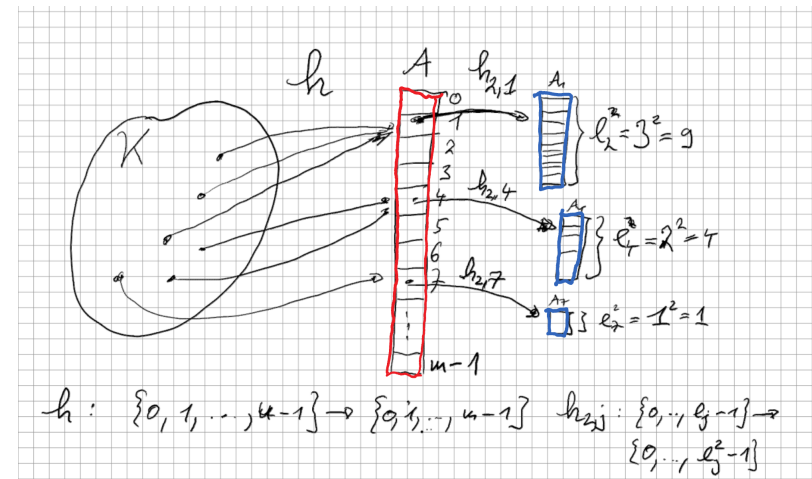 h A h₂,₁ A₁
K
0
1
2
3
4
5
6
7
m-1
ℓ₂² = 3² = 9
h₂,₄
ℓ₄² = 2² = 4
h₂,₇ A₇
ℓ₇² = 1² = 1
h : {0, 1, ..., u-1} → {0, 1, .., m-1} h₂,j : {0, .., ℓj-1} →
{0, .., ℓj²-1}